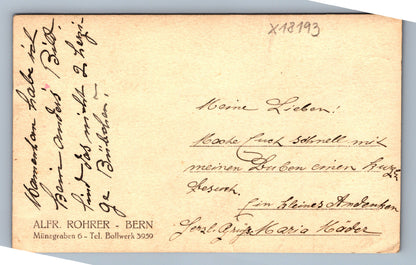 X18193
Momentan habe ich
kein anders Bild
sind das nicht 2 herzi-
ge Bübchen!
Meine Lieben!
Mache Euch schnell mit
meinen Buben einen kurzen
Besuch.
Ein kleines Andenken
Herzl. Grüsse Maria Mäder
ALFR. ROHRER - BERN
Münzgraben 6 - Tel. Bollwerk 5959